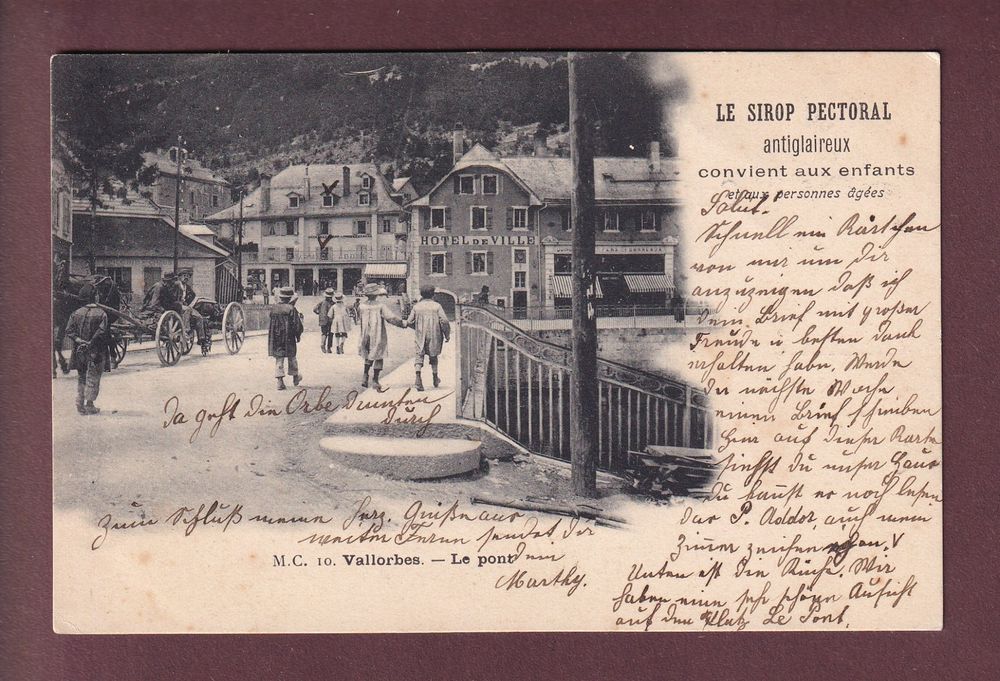 LE SIROP PECTORAL
antiglaireux
convient aux enfants
et aux personnes âgées
HOTEL DE VILLE
Salut.
Schnell ein Kärtchen
von mir um Dir
anzuzeigen daß ich
dein Brief mit großer
Freude u besten Dank
erhalten habe. Werde
die nächste Woche
einen Brief schreiben
hier auf dieser Karte
siehst du unser Haus
Du kannst es noch lesen
das P. Addor, auch mein
Zimmer zeichen V
Unten ist die Küche. Wir
haben eine sehr schöne Aussicht
auf den Platz Le Pont.
Da geht die Orbe drunten
durch
Zum Schluß meine herz. Grüße aus
weiter Ferne sendet Dir
dein
Marthy.
M.C. 10. Vallorbes. — Le pont